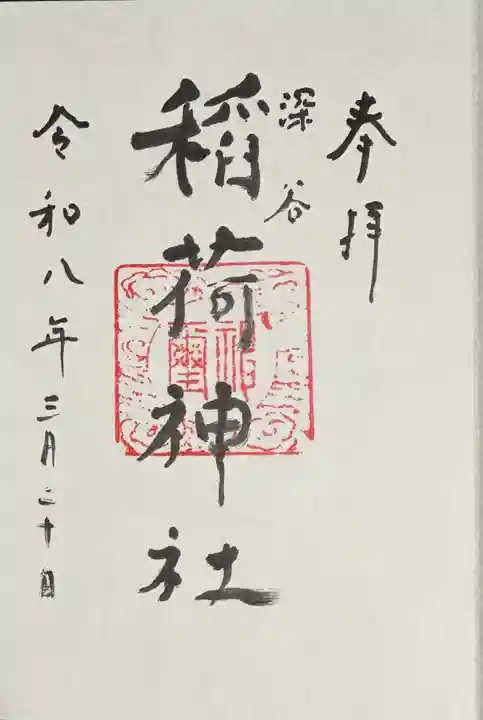 奉拝
深谷
稲荷神社
令和八年三月二十日